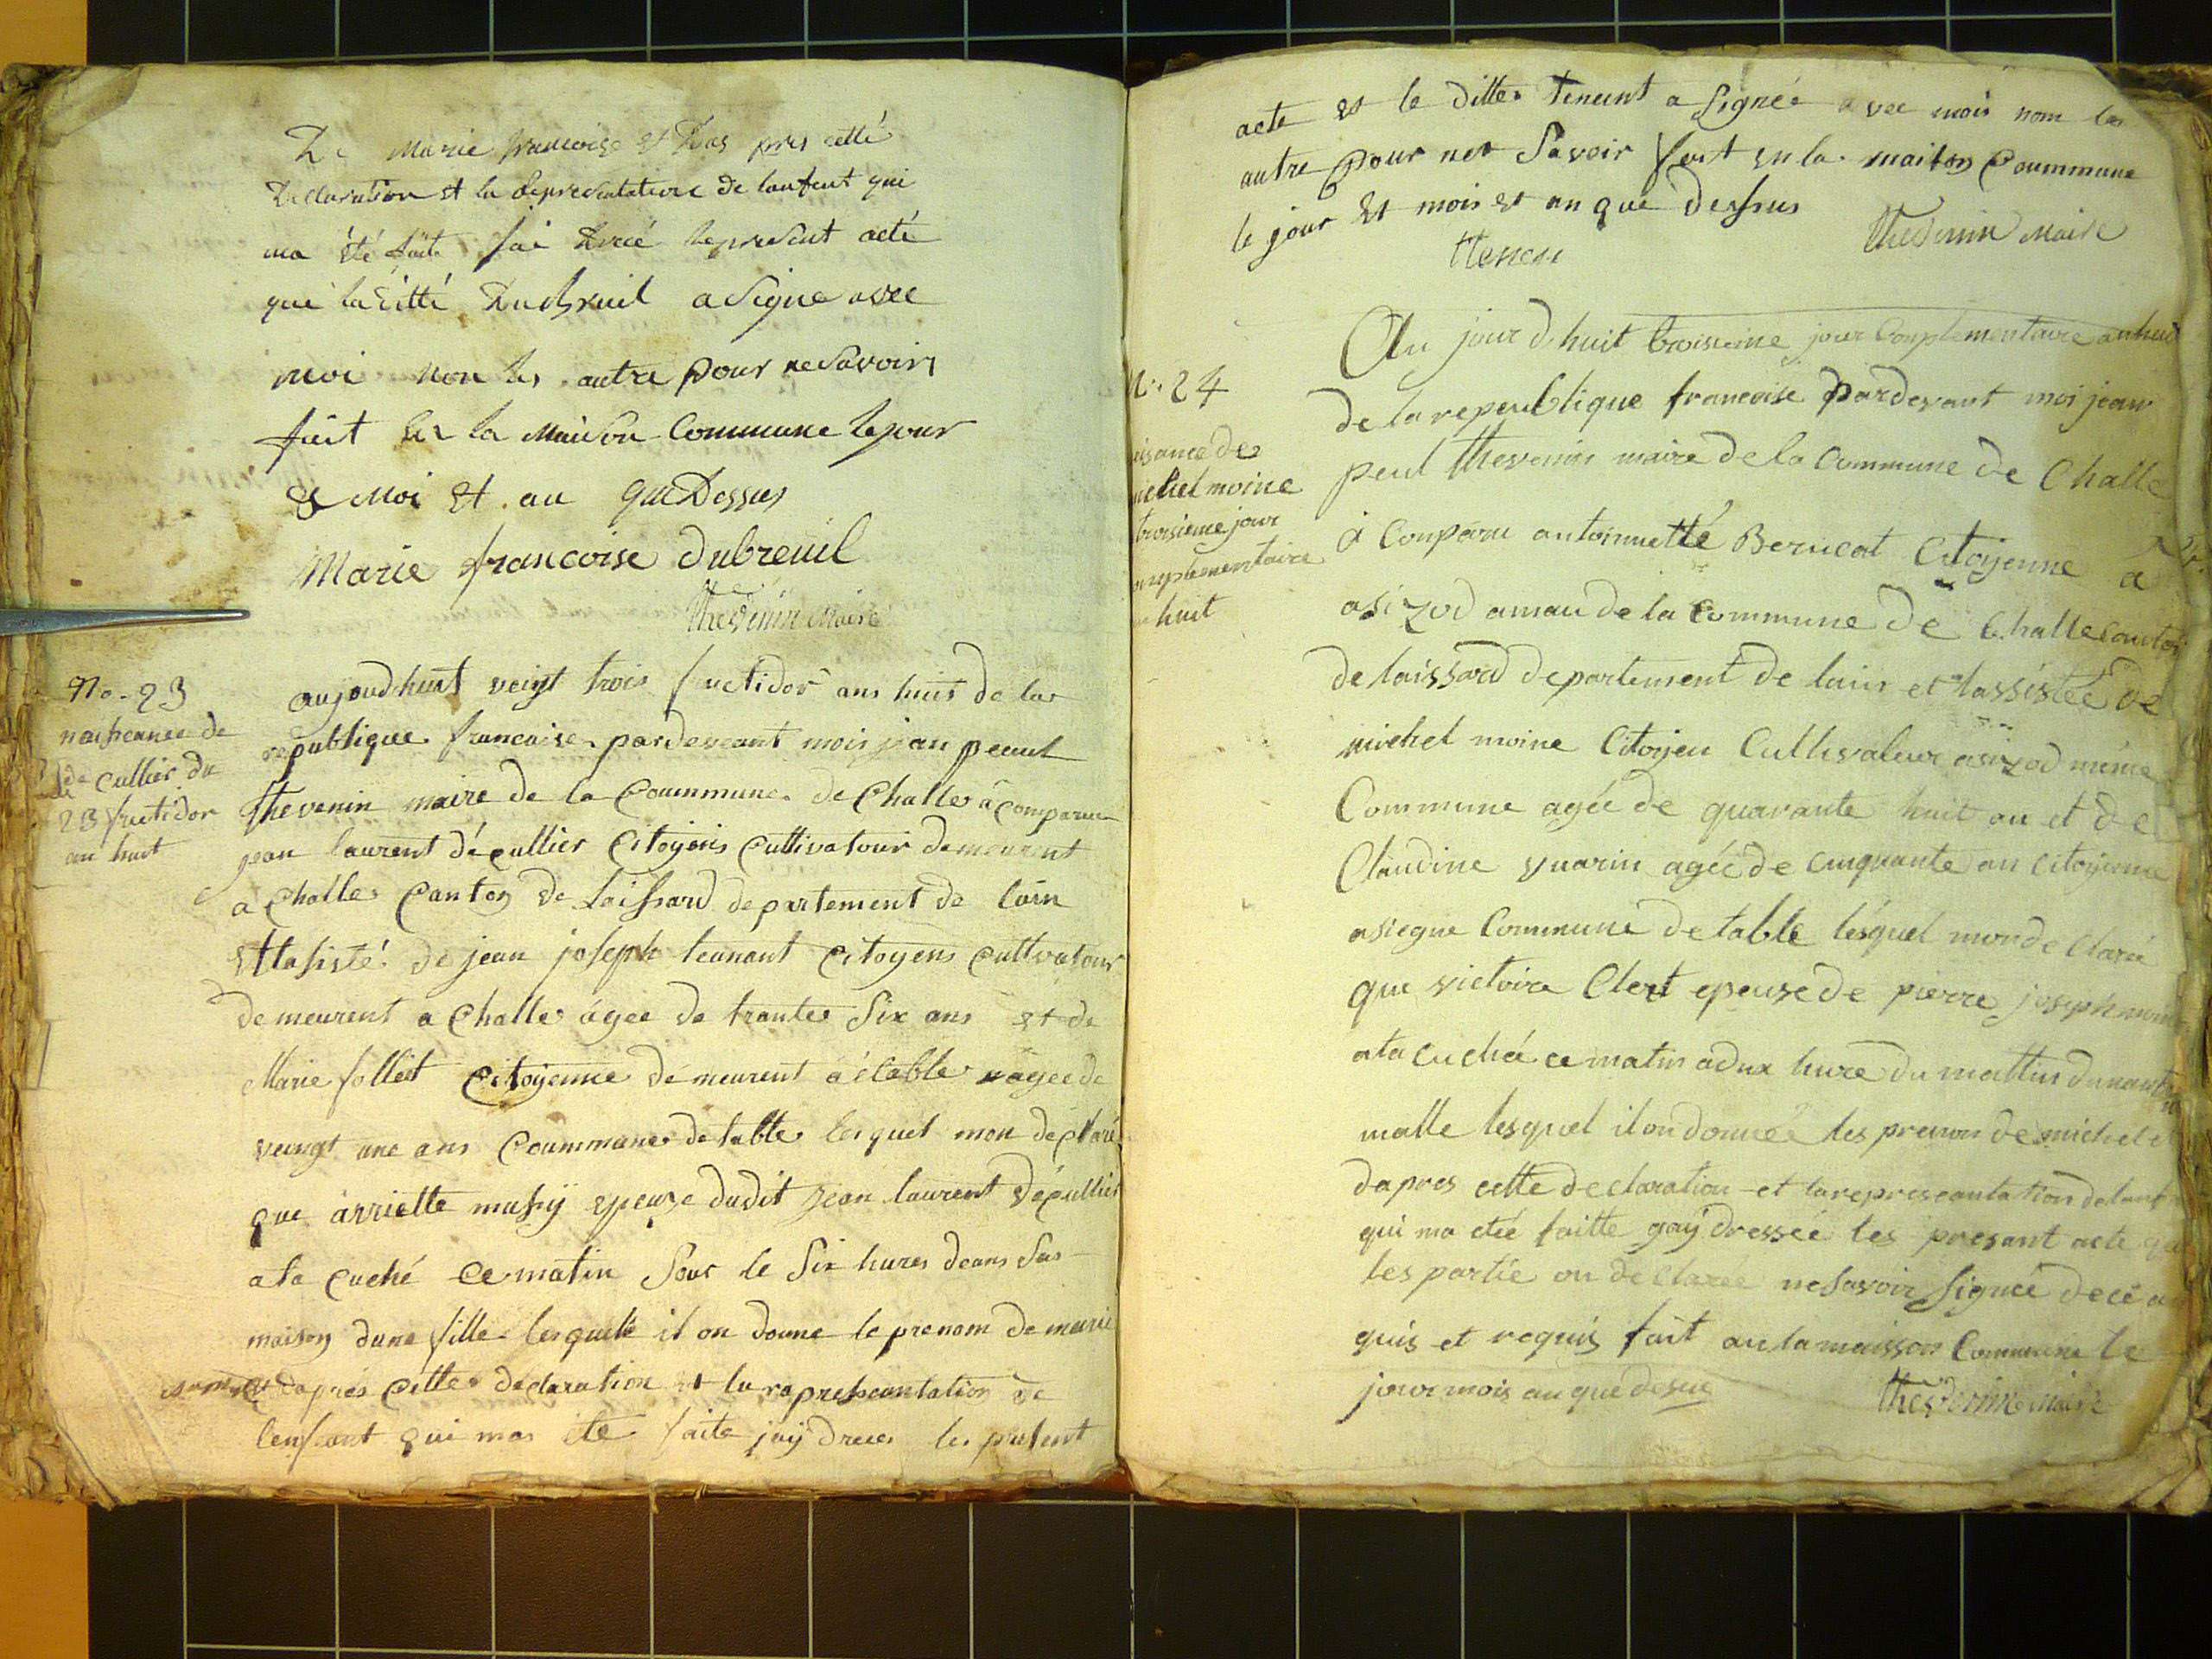 De Marie francoise et Das pres cette
Declaration et la Representation de lanfent qui
ma été fait Jai Drecé le present acte
que la ditte Dubreuil a Signe avec
moi Non les autre pour ne Savoir
fait En la Maison Commune le jour
& Moi Et au que Dessus
Marie francoise dubreuil
Thevenin Maire
No. 23
naissance de
de cullier du
23 fructidor
an huit
aujoudhuit veingt trois fructidor ans huit de la
republique francaise pardeveant mois jean peaul
Thevenin maire de la Coummune de Challe à comparu
jean laurent dépullier Citoyens Cultivatour demeurent
a Challe Canton de Laissard departement de lain
et lasisté de jean joseph tenant Citoyens Cultivatour
demeurent a Challe ágee de trante Six ans et de
Marie follet Citoyenne demeurent a étable agée de
veingt une ans Coummune detable les quel mon déclaré
que arriette mussy epeuse dudit jean laurent dépullier
ata cuché ce matin Sour le Six hures deans Sas
maison dune fille les quelle il on donne le prenom de marie
et daprés Cette déclaration et la represeantation de
lenfeant qui mas été faite jaÿ drece les present
acte et le ditte tenent a Signée avec mois nom les
autre pour net Savoir fait en la maison Coummune
le jour Et mois et an que dessus
Thevenin Maire
N. 24
michel moine
troisieme jour
complementaire
huit
Au jour d. huit troisieme jour Complementaire an huit
de la repeublique francoise pardevant moi jean
peul thevenin maire de la Commune de Challe
à Comparu antoinnette Berucat Citoyenne a
asizod amau de la Commune de Challe Canton
de laissard departement de lain et lassistée de
michel moine Citoyen Cultivateur asizod même
Commune agée de quarante huit an et de
Claudine vuarin agée de cinquante an Citoyenne
asiegne Commune detable lesquel mon de Claré
que victoire Clert epeuse de pierre joseph moine
ata cuché ce matin a dux hure du mattin dunanfan
malle lesquel il on donnée les prenon de michel et
dapres cette declaration et lareprescantation delanf
qui ma etée faitte gaÿ dressée les presant acte que
les partie on declaree ne Savoir Signée de ce an
quis et requis fait au la maisson Commune le
jour mois an que desue
thevenin maire